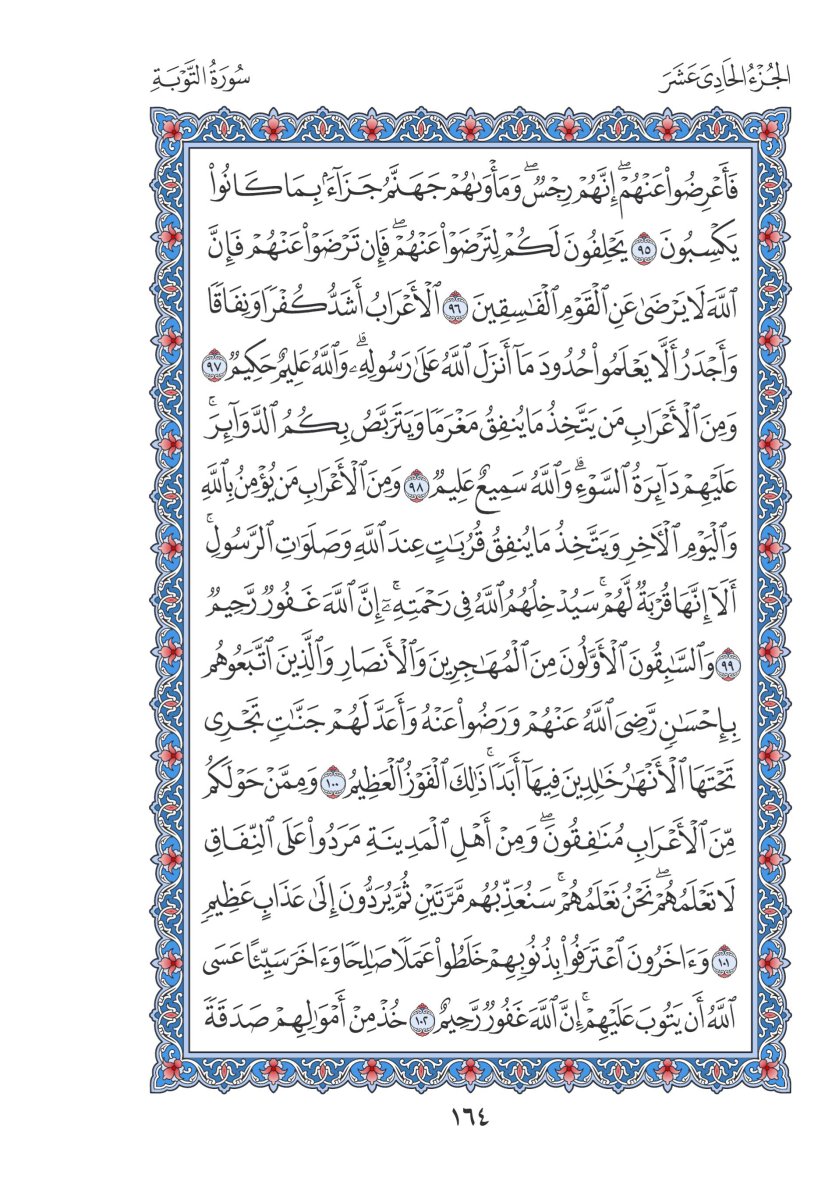 الجُزْءُ الحَادِىَ عَشَرَ
سُورَةُ التَّوْبَةِ
فَأَعْرِضُوا۟ عَنْهُمْ ۖ إِنَّهُمْ رِجْسٌ ۖ وَمَأْوَىٰهُمْ جَهَنَّمُ جَزَآءًۢ بِمَا كَانُوا۟
يَكْسِبُونَ ٩٥ يَحْلِفُونَ لَكُمْ لِتَرْضَوْا۟ عَنْهُمْ ۖ فَإِن تَرْضَوْا۟ عَنْهُمْ فَإِنَّ
ٱللَّهَ لَا يَرْضَىٰ عَنِ ٱلْقَوْمِ ٱلْفَـٰسِقِينَ ٩٦ ٱلْأَعْرَابُ أَشَدُّ كُفْرًا وَنِفَاقًا
وَأَجْدَرُ أَلَّا يَعْلَمُوا۟ حُدُودَ مَآ أَنزَلَ ٱللَّهُ عَلَىٰ رَسُولِهِۦ ۗ وَٱللَّهُ عَلِيمٌ حَكِيمٌ ٩٧
وَمِنَ ٱلْأَعْرَابِ مَن يَتَّخِذُ مَا يُنفِقُ مَغْرَمًا وَيَتَرَبَّصُ بِكُمُ ٱلدَّوَآئِرَ ۚ
عَلَيْهِمْ دَآئِرَةُ ٱلسَّوْءِ ۗ وَٱللَّهُ سَمِيعٌ عَلِيمٌ ٩٨ وَمِنَ ٱلْأَعْرَابِ مَن يُؤْمِنُ بِٱللَّهِ
وَٱلْيَوْمِ ٱلْـَٔاخِرِ وَيَتَّخِذُ مَا يُنفِقُ قُرُبَـٰتٍ عِندَ ٱللَّهِ وَصَلَوَٰتِ ٱلرَّسُولِ ۚ
أَلَآ إِنَّهَا قُرْبَةٌ لَّهُمْ ۚ سَيُدْخِلُهُمُ ٱللَّهُ فِى رَحْمَتِهِۦٓ ۗ إِنَّ ٱللَّهَ غَفُورٌ رَّحِيمٌ
٩٩ وَٱلسَّـٰبِقُونَ ٱلْأَوَّلُونَ مِنَ ٱلْمُهَـٰجِرِينَ وَٱلْأَنصَارِ وَٱلَّذِينَ ٱتَّبَعُوهُم
بِإِحْسَـٰنٍ رَّضِىَ ٱللَّهُ عَنْهُمْ وَرَضُوا۟ عَنْهُ وَأَعَدَّ لَهُمْ جَنَّـٰتٍ تَجْرِى
تَحْتَهَا ٱلْأَنْهَـٰرُ خَـٰلِدِينَ فِيهَآ أَبَدًا ۚ ذَٰلِكَ ٱلْفَوْزُ ٱلْعَظِيمُ ١٠٠ وَمِمَّنْ حَوْلَكُم
مِّنَ ٱلْأَعْرَابِ مُنَـٰفِقُونَ ۖ وَمِنْ أَهْلِ ٱلْمَدِينَةِ مَرَدُوا۟ عَلَى ٱلنِّفَاقِ
لَا تَعْلَمُهُمْ ۖ نَحْنُ نَعْلَمُهُمْ ۚ سَنُعَذِّبُهُم مَّرَّتَيْنِ ثُمَّ يُرَدُّونَ إِلَىٰ عَذَابٍ عَظِيمٍ
١٠١ وَءَاخَرُونَ ٱعْتَرَفُوا۟ بِذُنُوبِهِمْ خَلَطُوا۟ عَمَلًا صَـٰلِحًا وَءَاخَرَ سَيِّئًا عَسَى
ٱللَّهُ أَن يَتُوبَ عَلَيْهِمْ ۚ إِنَّ ٱللَّهَ غَفُورٌ رَّحِيمٌ ١٠٢ خُذْ مِنْ أَمْوَٰلِهِمْ صَدَقَةً
١٦٤